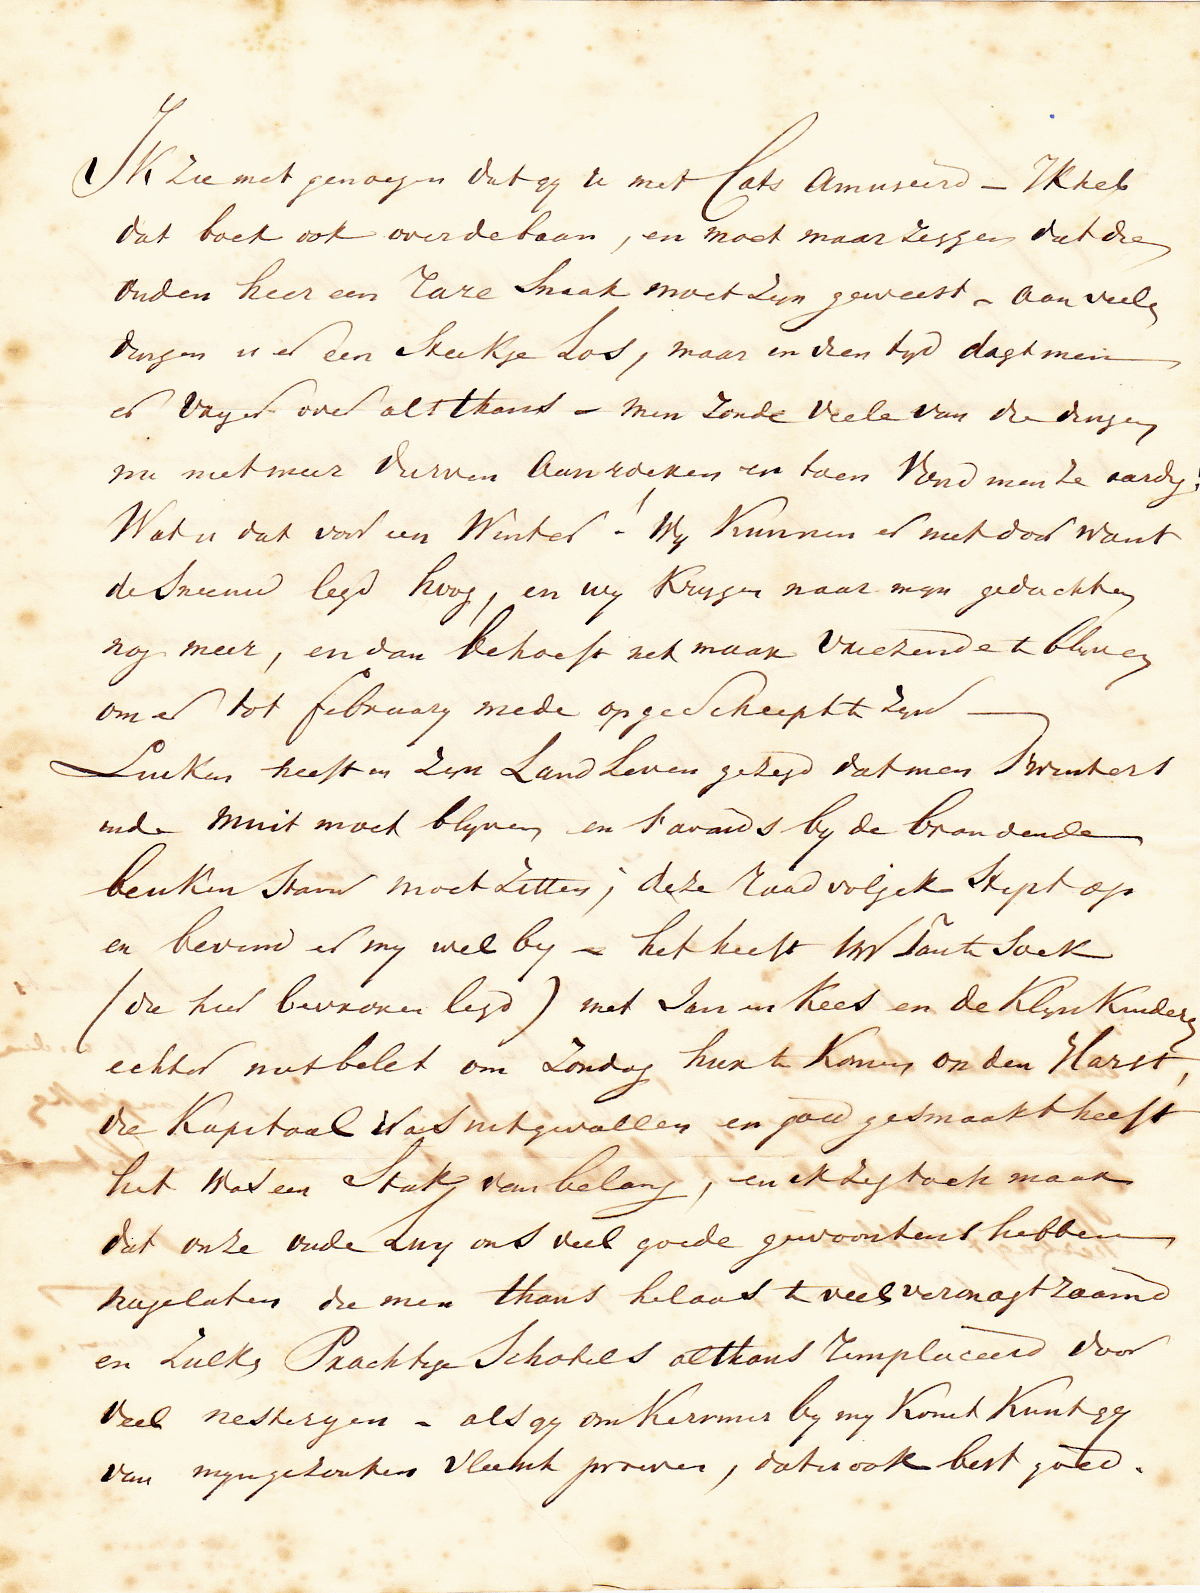 Ik zie met genoegen dat gy u met Cats amuseerd — Ik heb
dat boek ook over de baan, en moet maar zeggen dat die
ouden heer een rare Snaak moet zyn geweest - aan veele
dingen is er een Steekje Los, maar in dien tyd dagt men
er vryer over als thans - men zoude veele van die dingen
nu niet meer durven aanroeren en toen vond men ze aardig!
Wat is dat voor een Winter! Wy kunnen er niet door want
de Sneeuw legd hoog, en wy krygen naar myn gedachten
nog meer, en dan behoeft het maar vriezende te blyven
om er tot february mede opgescheept te zyn —
Luiken heeft in zyn Land Leven gezegd dat men S'winters
in de Muit moet blyven en s'avonds by de brandende
beuken Stam moet zitten; deze raad volg ik Stipt op
en bevind er my wel by - het heeft uw Tante Soek
(die hier bevroren legd) met Jan en Kees en de Klyn Kinderen
echter niet belet om Zondag hier te komen op den Harst,
die Kapitaal was uitgevallen en goed gesmaakt heeft
het was een Stukj van belang, en ik zeg toch maar
dat onze oude Luy ons veel goede gewoontens hebben
nagelaten die men thans helaas te veel veronagtzaamd
en zulke Prachtige Schotels althans remplaceerd door
veel nesteryen - als gy om Kersmis by my komt kunt gy
van myn gezouten vleesch proeven, dat is ook best goed.